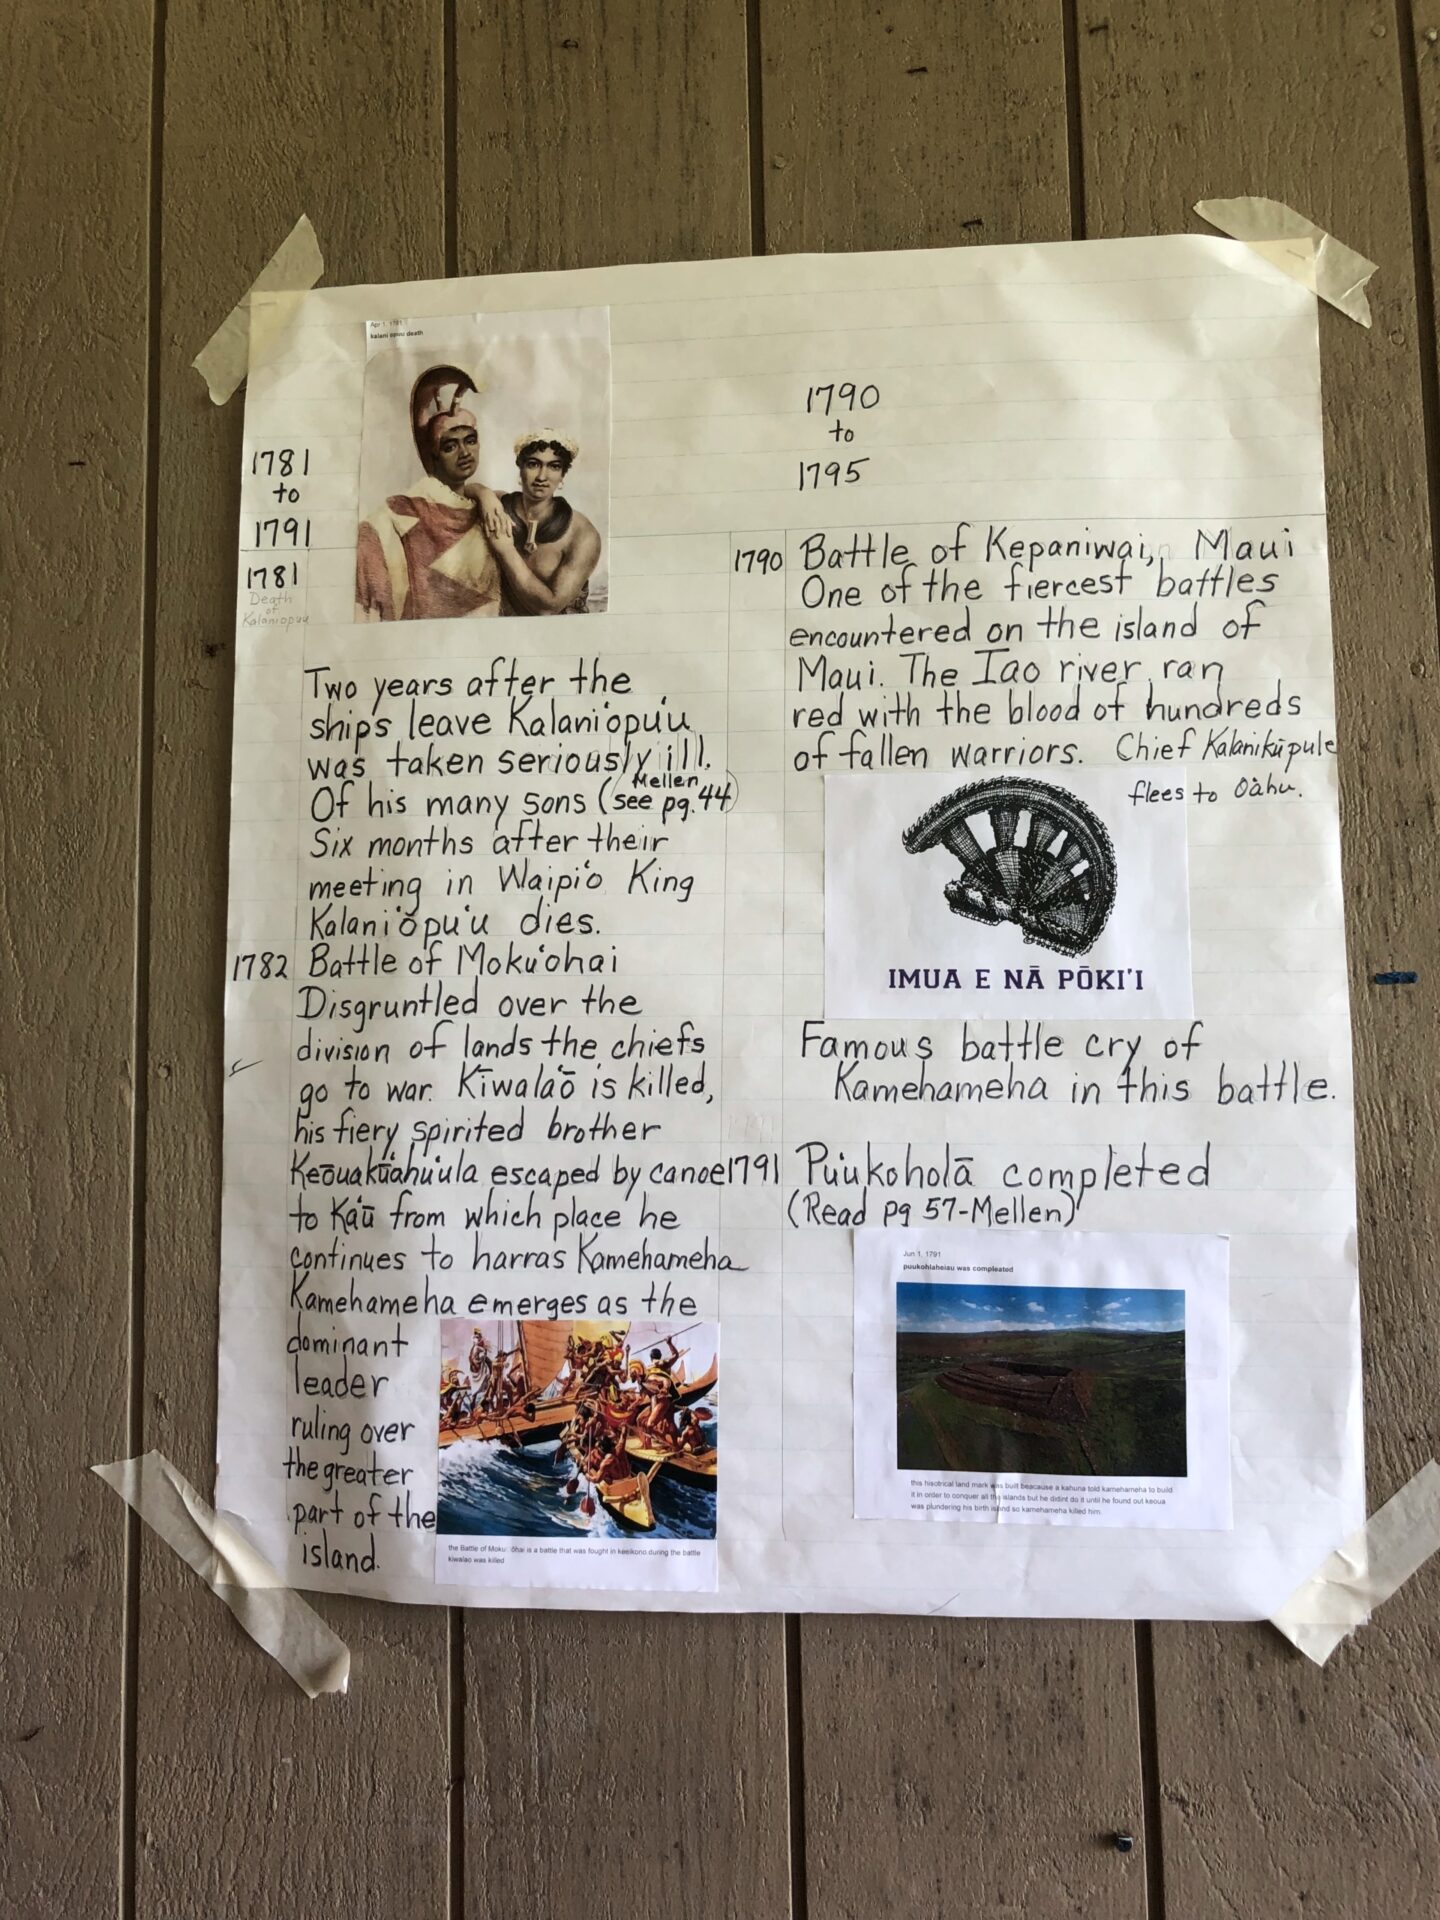 Apr 1, 1781
kalani opuu death
1781
to
1791
1781
Death
of
Kalaniopuu
Two years after the
ships leave Kalani'opu'u
was taken seriously ill.
Of his many sons (see Mellen pg. 44)
Six months after their
meeting in Waipi'o King
Kalani'ōpu'u dies.
1782 Battle of Moku'ohai
Disgruntled over the
division of lands the chiefs
go to war. Kīwala'ō is killed,
his fiery spirited brother
Keōuakū'ahu'ula escaped by canoe
to Ka'ū from which place he
continues to harras Kamehameha
Kamehameha emerges as the
dominant
leader
ruling over
the greater
part of the
island.
the Battle of Moku: ōhai is a battle that was fought in keeikono.during the battle
kiwalao was killed
1790
to
1795
1790 Battle of Kepaniwai, Maui
One of the fiercest battles
encountered on the island of
Maui. The Iao river ran
red with the blood of hundreds
of fallen warriors. Chief Kalanikūpule
flees to O'ahu.
IMUA E NĀ PŌKI'I
Famous battle cry of
Kamehameha in this battle.
1791 Pu'ukoholā completed
(Read pg 57-Mellen)
Jun 1, 1791
puukohlaheiau was compleated
this hisotrical land mark was built beacause a kahuna told kamehameha to build
it in order to conquer all the islands but he didint do it until he found out keoua
was plundering his birth island so kamehameha killed him.